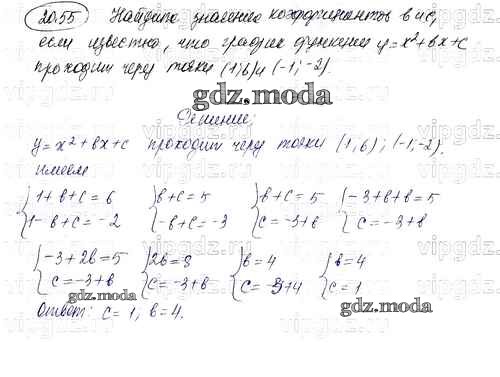 20.55 Найдите значение коэффициентов в и с,
если известно, что график функции y=x²+bx+c
проходит через точки (1;6) и (-1;-2).
gdz.moda
Решение:
y=x²+bx+c проходит через точки (1;6); (-1;-2).
имеем
{1+b+c=6 {b+c=5 {b+c=5 {-3+b+b=5
{1-b+c=-2 {-b+c=-3 {c=-3+b {c=-3+b
{-3+2b=5 {2b=8 {b=4 {b=4
{c=-3+b {c=-3+b {c=-3+4 {c=1
gdz.moda gdz.moda
Ответ: c=1, b=4.
vipgdz.ru